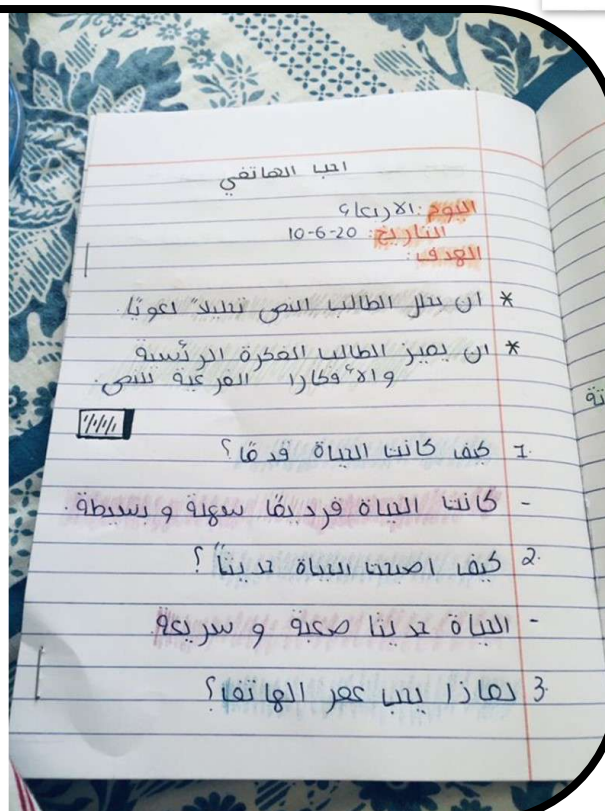 احب الهاتفي
اليوم: الاربعاء
التاريخ: 20-6-10
الهدف:
* ان يحلل الطالب النص تحليلا" لغويًا.
* ان يميز الطالب الفكرة الرئسية
والأفكارا الفرعية للنص.
1. كيف كانت الحياة قدمًا؟
- كانت الحياة قرديمًا سهلة و بسيطة.
2. كيف اصبحت الحياة حديثاً؟
- الحياة حديثا صعبة و سريعة
3. لماذا يحب عمر الهاتف؟